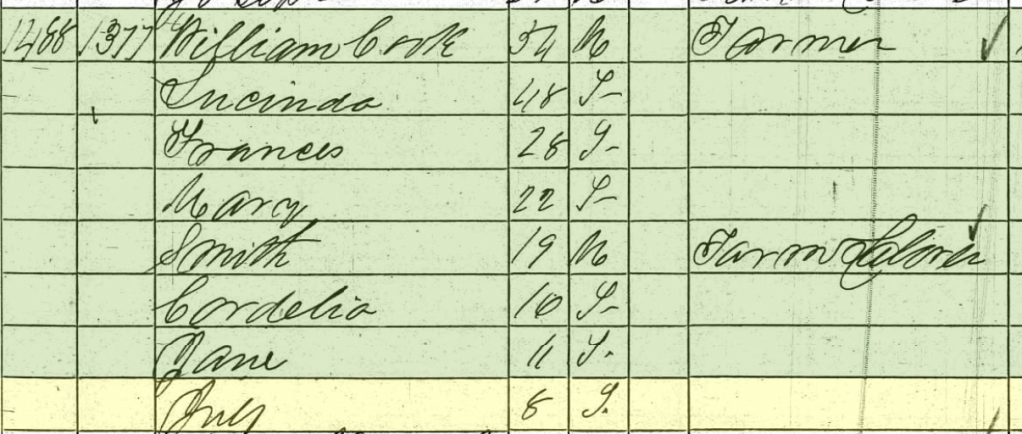 1488 1377 William Cook 54 M Farmer
Lucinda 48 F
Frances 28 F
Mary 22 F
Smith 19 M Farm Laborer
Cordelia 10 F
Jane 11 F
July 8 F